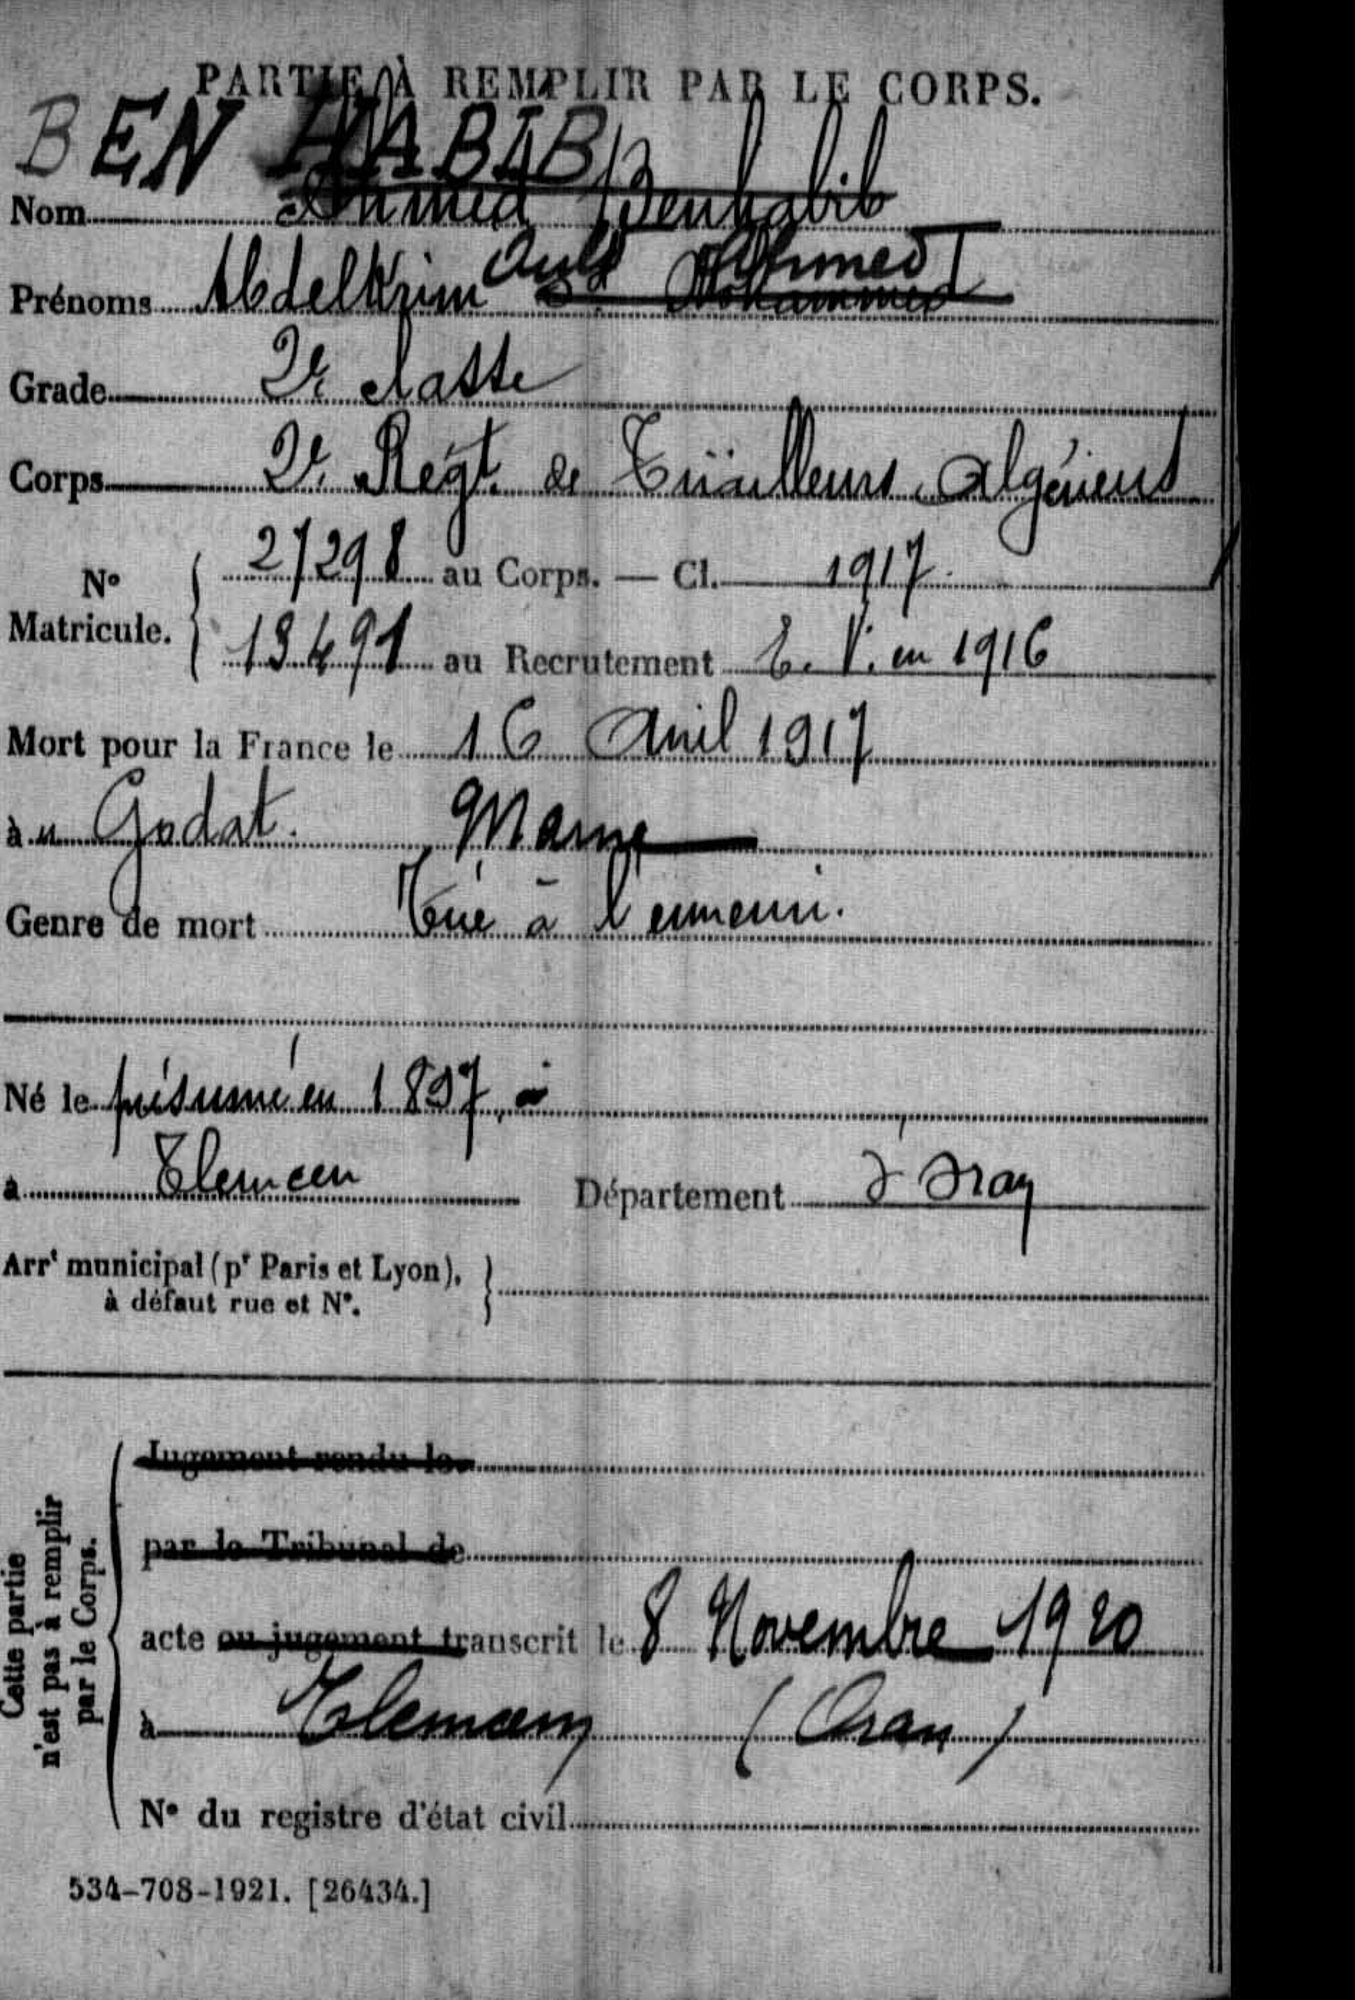 PARTIE À REMPLIR PAR LE CORPS.
BEN HABIB
Nom Ahmed Benhabib
Prénoms Abdelkrim Ould Ahmed Mohammed
Grade 2e classe
Corps 2e Régt. de Tirailleurs Algériens
No Matricule. 27298 au Corps. — Cl. 1917
13491 au Recrutement E. V. en 1916
Mort pour la France le 16 Avril 1917
à u Godat. Marne
Genre de mort Tué à l'ennemi.
Né le présumé en 1897, à
à Tlemcen Département d'Oran
Arrt municipal (pr Paris et Lyon),
à défaut rue et No.
Cette partie n'est pas à remplir par le Corps.
Jugement rendu le
par le Tribunal de
acte ou jugement transcrit le 8 Novembre 1920
à Tlemcen (Oran)
No du registre d'état civil
534-708-1921. [26434.]